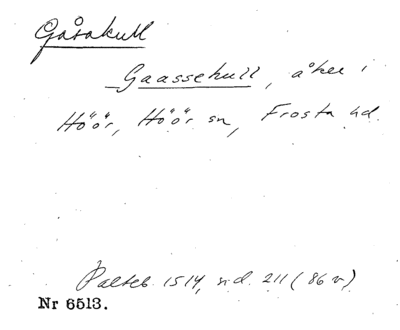 Gåsakull
Gaassehull, åker i
Höör, Höör sn, Frosta hd.
Palteb. 1514, sid. 211 (86 v)
Nr 6513.